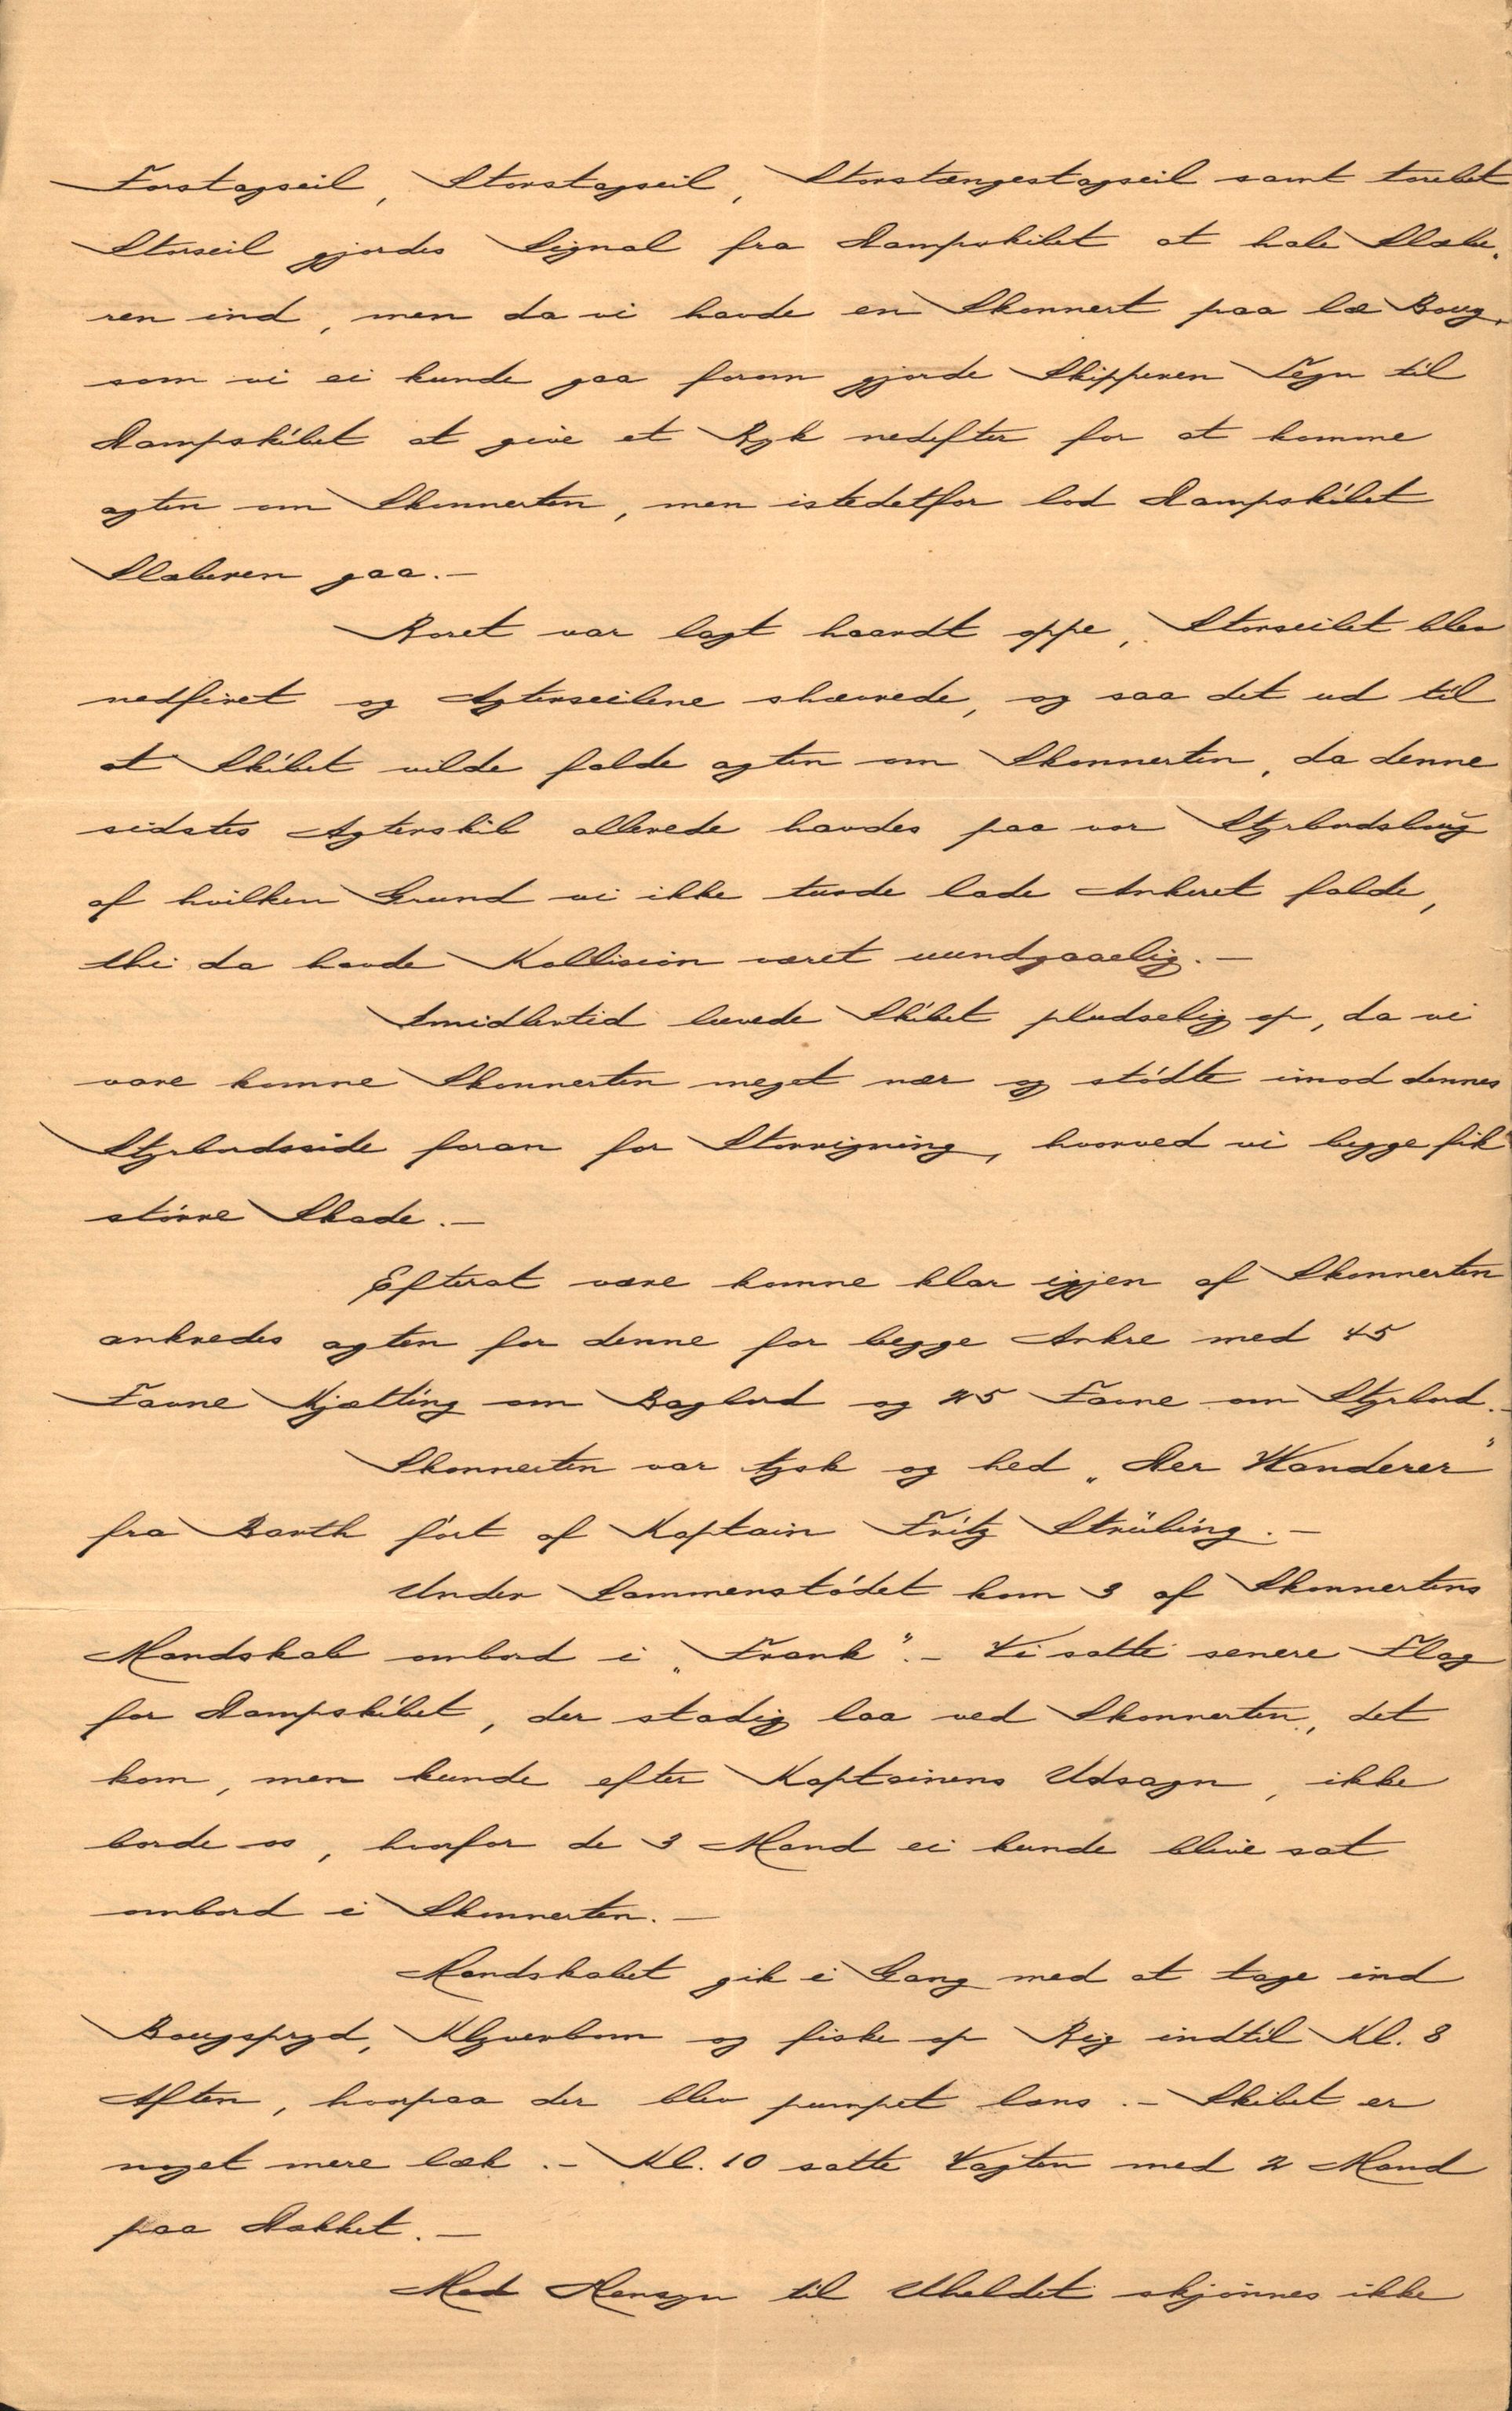 Forstagseil, Storstagseil, Storstængestagseil samt torebet
Storseil gjordes Signal fra Dampskibet at hale Slæbe-
ren ind, men da vi havde en Skonnert paa læ Boug,
som vi ei kunde gaa forom gjorde Skipperen Tegn til
Dampskibet at give et Ryk nedefter for at komme
agten om Skonnerten, men istedetfor lod Dampskibet
Slæberen gaa.—
Roret var lagt haardt oppe, Storseilet blev
nedfiret og Agterseilene skævrede, og saa det ud til
at Skibet vilde falde agten om Skonnerten, da denne
sidstes Agterskib allerede havdes paa vor Styrbordsboug
af hvilken Grund vi ikke turde lade Ankeret falde,
thi da havde Kollision været uundgaaelig.—
Imidlertid luvede Skibet pludselig op, da vi
vare komne Skonnerten meget nær og stødte imod dennes
Styrbordsside foran for Storrigning, hvorved vi begge fik
større Skade.—
Efterat være komne klar igjen af Skonnerten
ankredes agten for denne for begge Ankre med 45
Favne Kjætting om Bagbord og 25 Favne om Styrbord.—
Skonnerten var tysk og hed „Der Wanderer"
fra Barth ført af Kaptain Fritz Strübing.—
Under Sammenstødet kom 3 af Skonnertens
Mandskab ombord i „Frank".— Vi satte senere Flag
for Dampskibet, der stadig laa ved Skonnerten, det
kom, men kunde efter Kaptainens Udsagn, ikke
borde os, hvorfor de 3 Mand ei kunde blive sat
ombord i Skonnerten.—
Mandskabet gik i Gang med at tage ind
Bougspryd, Klyverbom og fiske op Rig indtil Kl. 8
Aften, hvorpaa der blev pumpet læns.— Skibet er
noget mere læk.— Kl. 10 satte Vagten med 2 Mand
paa Dækket.—
Med Hensyn til Uheldet skjønnes ikke